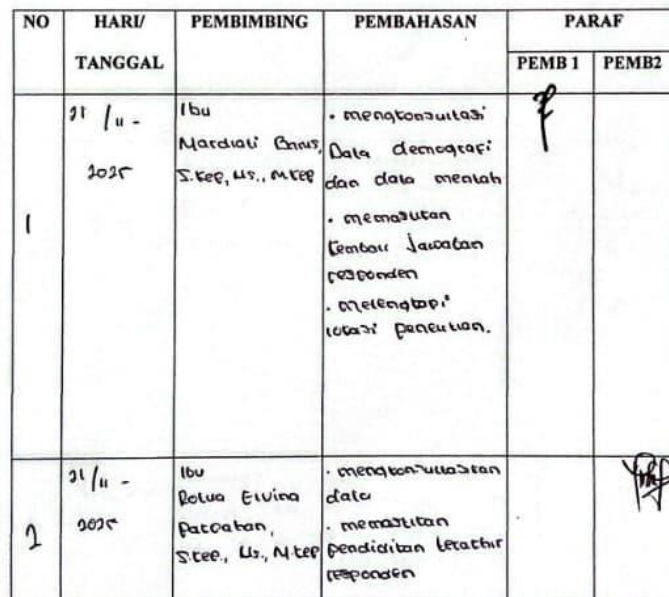 NO HARI/ PEMBIMBING PEMBAHASAN PARAF
TANGGAL PEMB 1 PEMB2
1
21 / 11 -
2025
Ibu
Mardiati Barus,
S.Kep, Ns., M.Kep
• mengkonsultasi
Data demografi
dan data mentah
• memasukan
kembali jawaban
responden
• melengkapi
lokasi penelitian.
2
21 / 11 -
2025
Ibu
Rotua Elvina
Pakpahan,
S.Kep., Ns., M.Kep
• mengkonsultasikan
data
• memastikan
pendidikan terakhir
responden